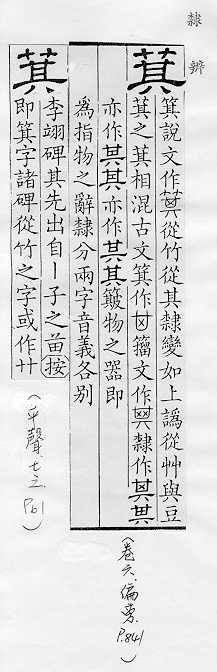 隸辨
萁
箕說文作從竹從其隸變如上譌從艸與豆
萁之萁相混古文箕作𠀠籀文作隸作其
亦作其其亦作其其簸物之器即
為指物之辭隸分兩字音義各別
(卷六.偏旁.P.841)
萁
李翊碑其先出自丨子之苗按
即箕字諸碑從竹之字或作艹
(平聲.七之.P61)